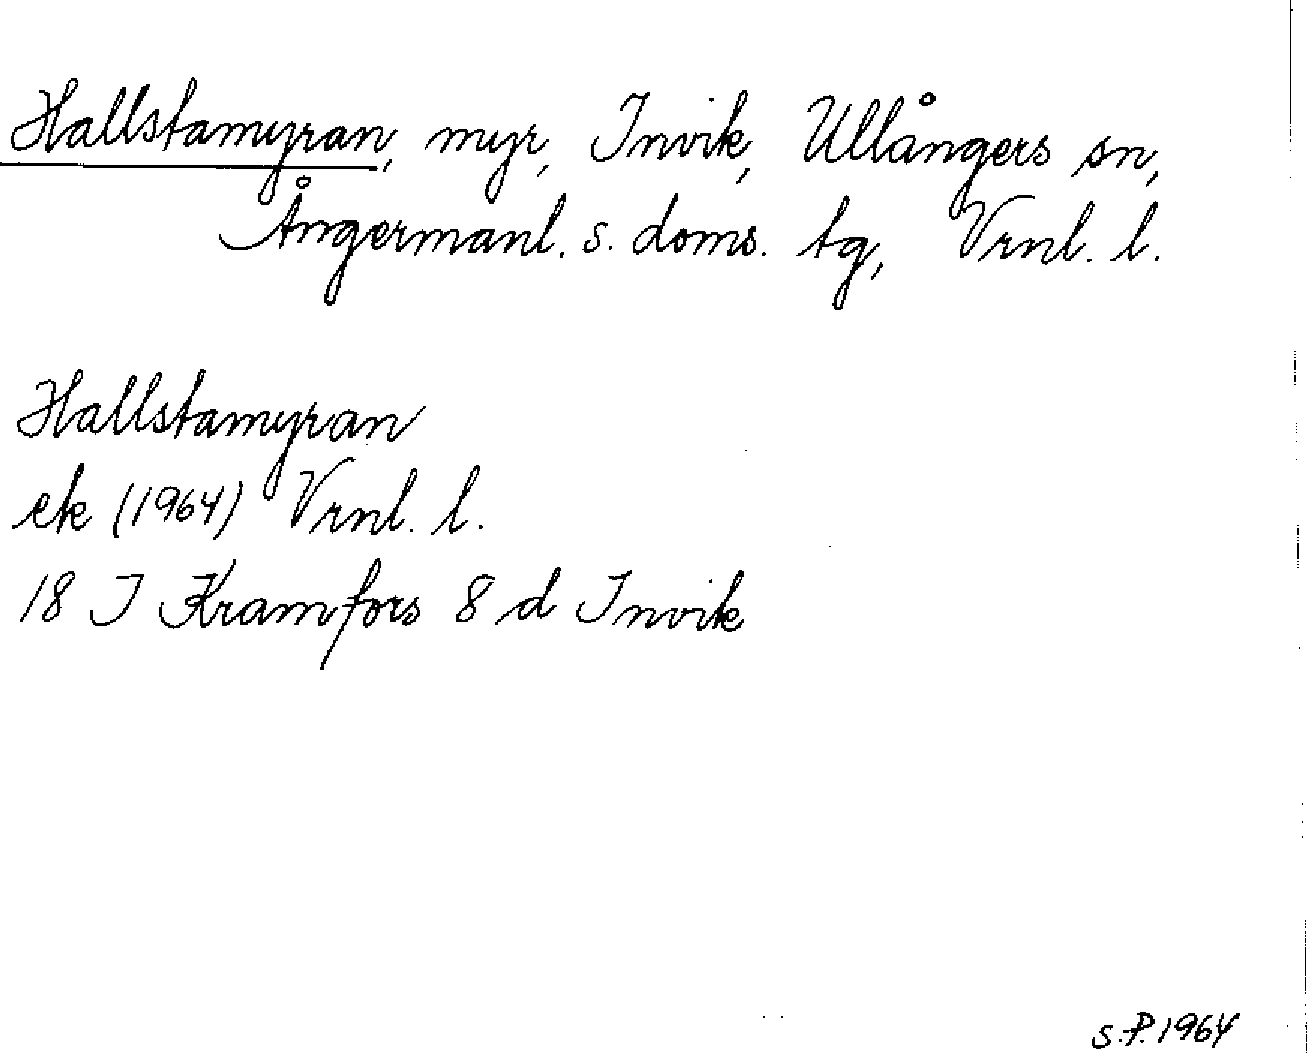 Hallstamyran, myr, Invik, Ullångers sn,
Ångermanl. s. doms. tg, Vrnl. l.
Hallstamyran
ek (1964) Vrnl. l.
18 J Kramfors 8 d Invik
S.P. 1964